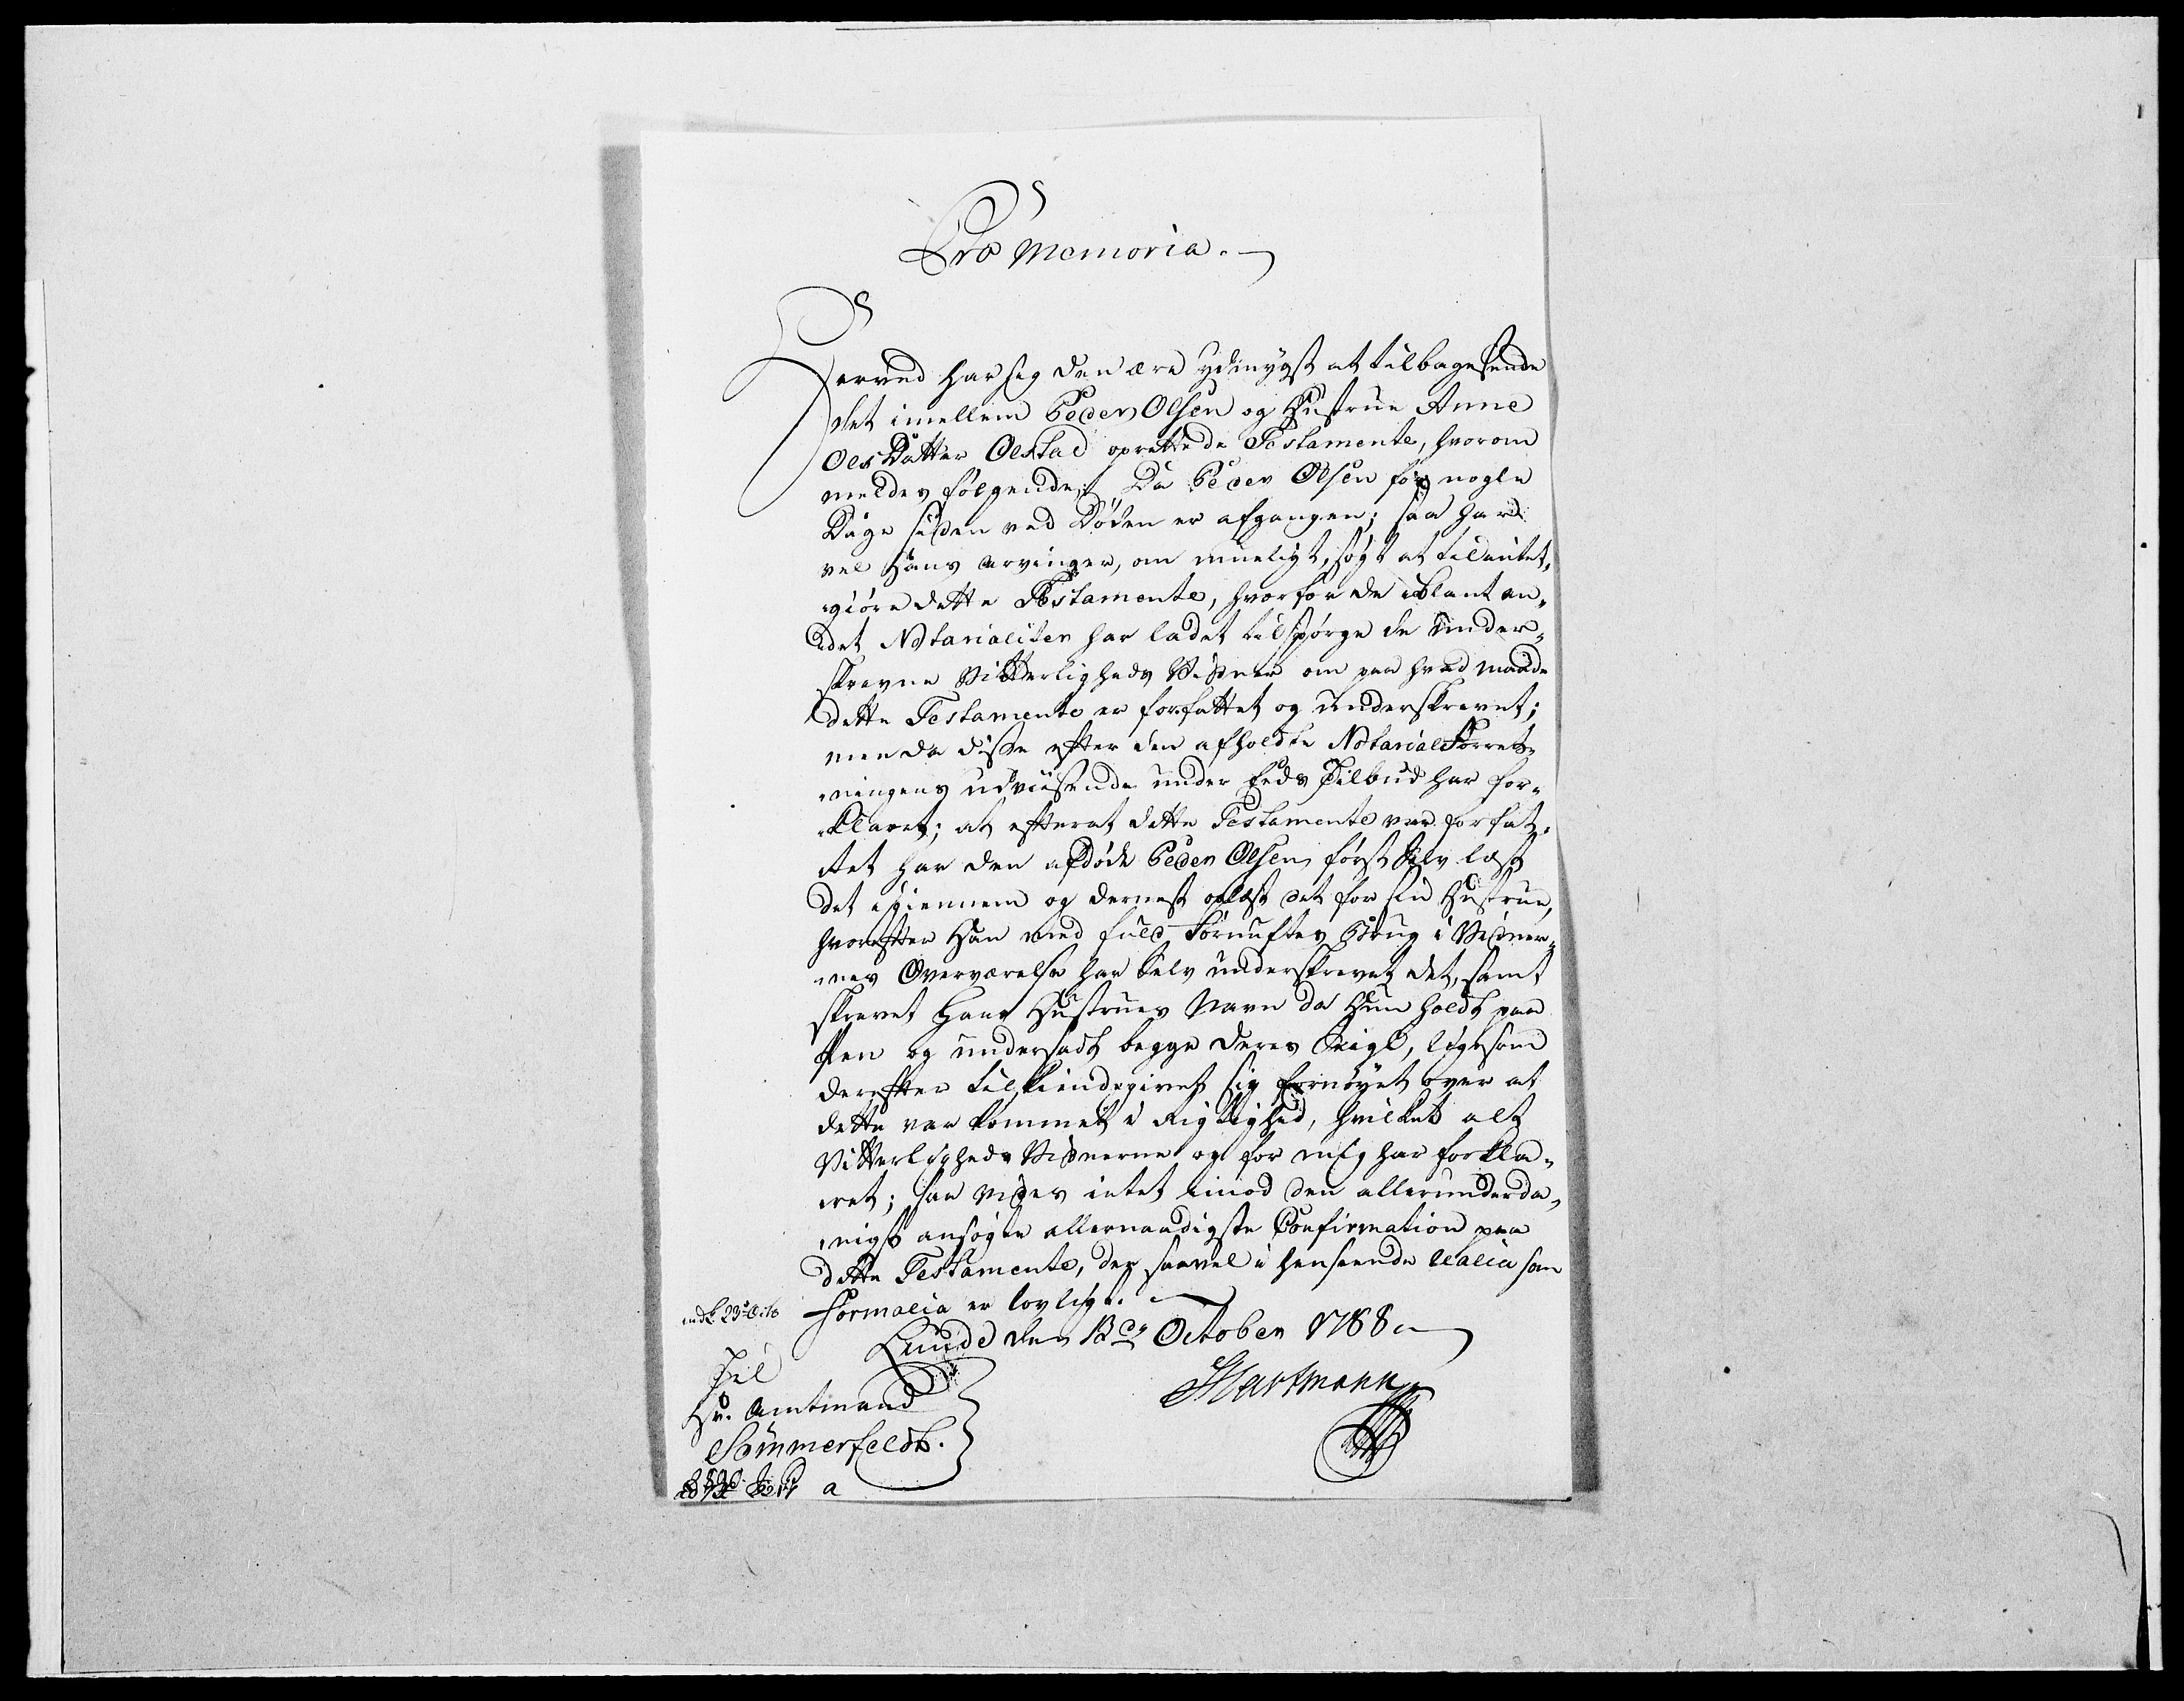 Pro Memoria.
Herved har jeg den ære ydmygst at tilbagesende
det imellem Peder Olsen og Hustrue Anne
Ols Datter Oelstad oprettede Testamente, hvorom
meldes følgende; Da Peder Olsen for nogle
Dage siden ved Døden er afgangen; saa har
vel Hans Arvinger, om mueligt, søgt at tilintet-
giøre dette Testamente, hvorfor de iblant an-
det Notarialiter har ladet tilspørge de under-
skrevne Vitterligheds Vidner om paa hvad maade
dette Testamente er forfattet og underskrevet;
men da disse efter den afholdte Notarial Forret-
ningens udviisende under Eeds Tilbud har for-
klaret; at efterat dette Testamente var forfat-
tet har den afdøde Peder Olsen først selv læst
det igiennem og dernest oplæst det for sin Hustrue,
hvorefter Han med fuld Fornuftes Brug i Vidner-
nes Overværelse har Selv underskrevet det, samt
skrevet Hans Hustrues Navn da Hun holdt paa
Pen og undersadt begge deres Seigl, ligesom
derefter tilkiendegivet sig fornøyet over at
dette var kommet i Rigtighed, hvilket alt
Vitterligheds Vidnerne og for mig har forkla-
ret; saa vides intet imod den allerunderda-
nigst ansøgte allernaadigste Confirmation paa
dette Testamente, der saavel i henseende realia som
formalia er lovligt.
indk. 23de Octb
Lunde den 13de October 1788
Til
Hr. Amtmand
Sommerfeldt.
Hartmann
a